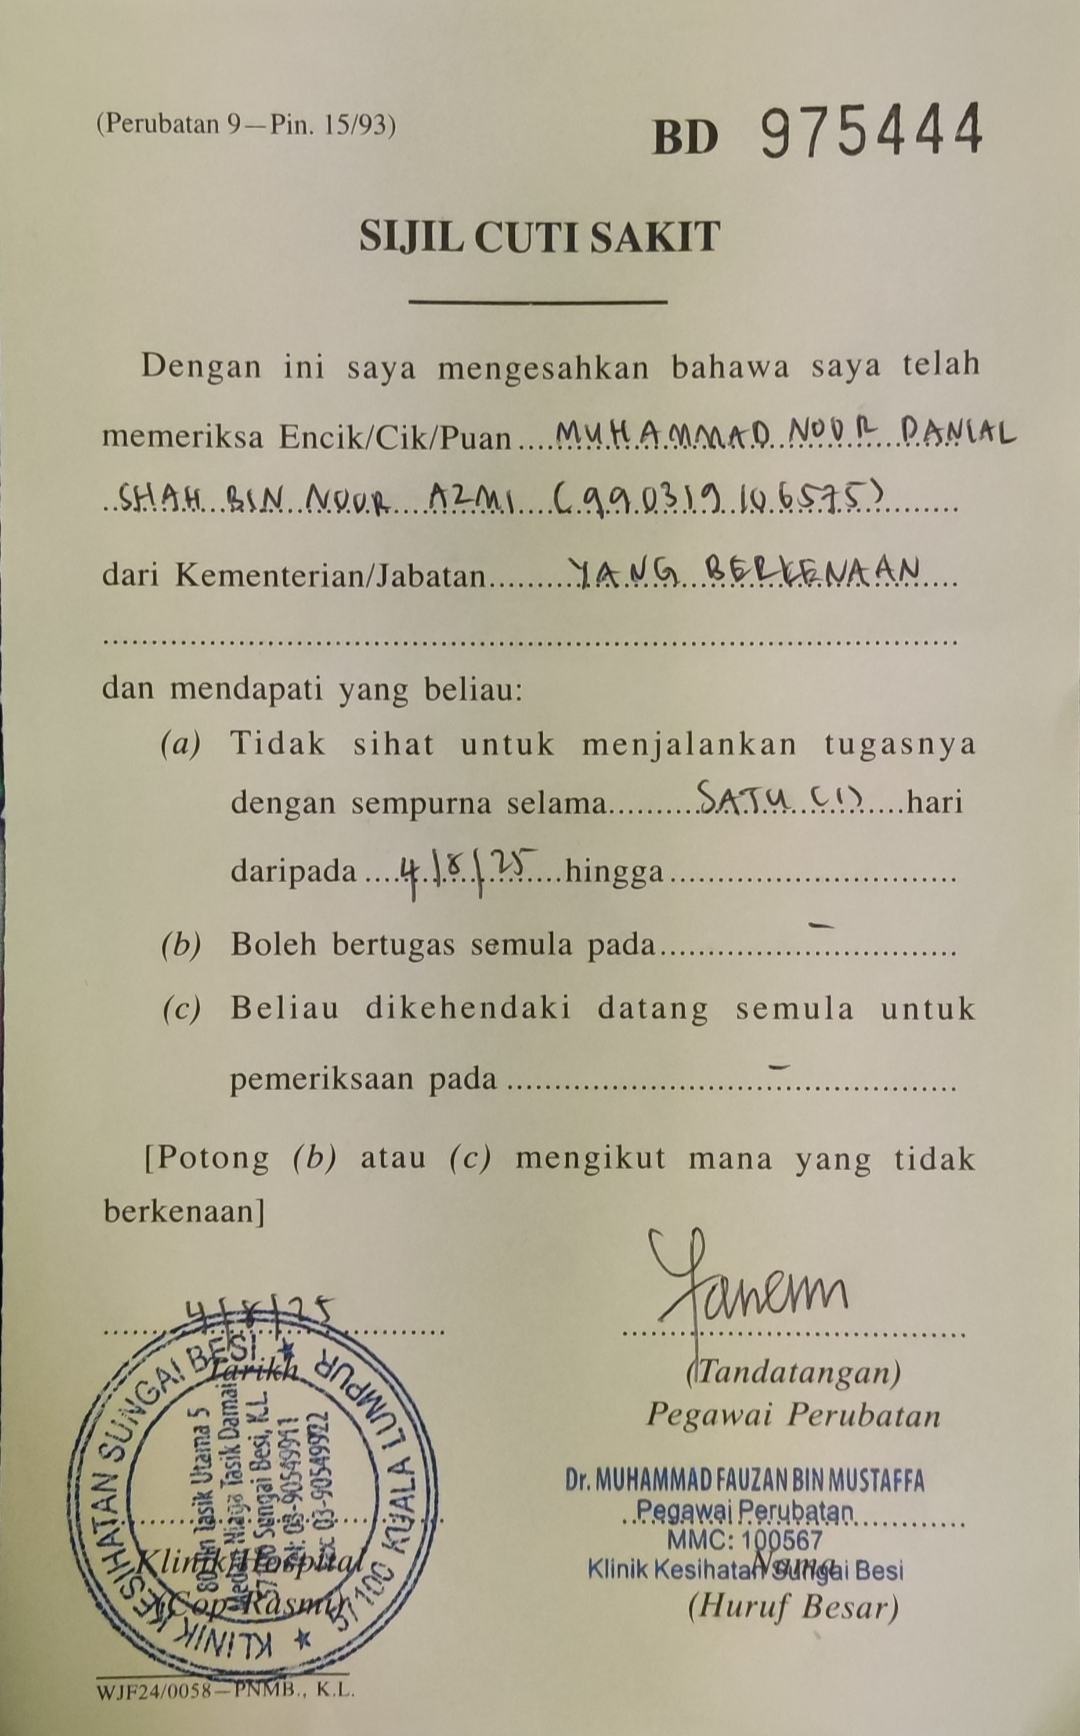 (Perubatan 9—Pin. 15/93)
BD 975444
SIJIL CUTI SAKIT
Dengan ini saya mengesahkan bahawa saya telah
memeriksa Encik/Cik/Puan....MUHAMMAD NOOR DANIAL
SHAH BIN NOOR AZMI (990319106575)
dari Kementerian/Jabatan.........YANG BERKENAAN
dan mendapati yang beliau:
(a) Tidak sihat untuk menjalankan tugasnya
dengan sempurna selama.........SATU (1).....hari
daripada....4/8/25...hingga..............................
(b) Boleh bertugas semula pada...............–..............
(c) Beliau dikehendaki datang semula untuk
pemeriksaan pada............................–..................
[Potong (b) atau (c) mengikut mana yang tidak
berkenaan]
4/8/25
Tarikh
(Tandatangan)
Pegawai Perubatan
Dr. MUHAMMAD FAUZAN BIN MUSTAFFA
Pegawai Perubatan
MMC: 100567
Klinik Kesihatan Sungai Besi
Nama
(Huruf Besar)
KLINIK KESIHATAN SUNGAI BESI ★ 57100 KUALA LUMPUR ★
Tasik Utama 5
Medan Niaga Tasik Damai
Sungai Besi, K.L.
Tel: 03-90549911
03-90549922
Klinik/Hospital
(Cop Rasmi)
WJF24/0058—PNMB., K.L.